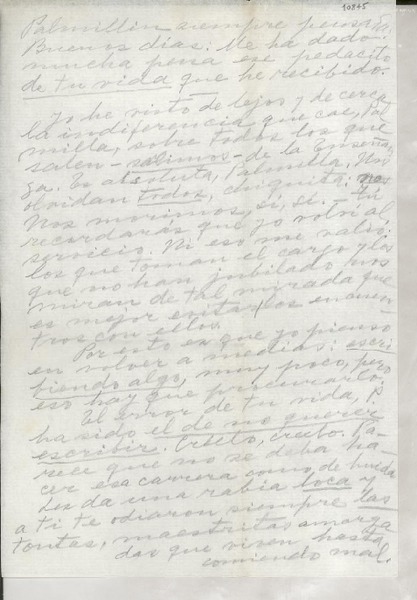 10845
Palmillin siempre pensada:
Buenos días: Me ha dado
mucha pena ese pedacito
de tu vida que he recibido.
Yo he visto de lejos y de cerca
la indiferencia que cae, Pal
milla, sobre todos los que
salen - salimos - de la Enseñan
za. Es absoluta, Palmilla. Nos
olvidan todos, chiquita: nos
Nos morimos, sí, sí. - Tú
recordarás que yo volví al
servicio. Ni eso me valió:
los que toman el cargo y los
que no han jubilado nos
miran de tal mirada que
es mejor evitarlos encuen
tros con ellos.
Por esto es que yo pienso
en volver a medias: escri
biendo algo, muy poco, pero
eso hay que procurarlo.
El error de tu vida, P.
ha sido el de no querer
escribir. Créelo, créelo. Pa-
rece que no se deba ha-
cer esa carrera como de
Les da una rabia loca y
a ti te odiaron siempre las
tontas, maestritas amarga
das que viven hasta
comiendo mal.